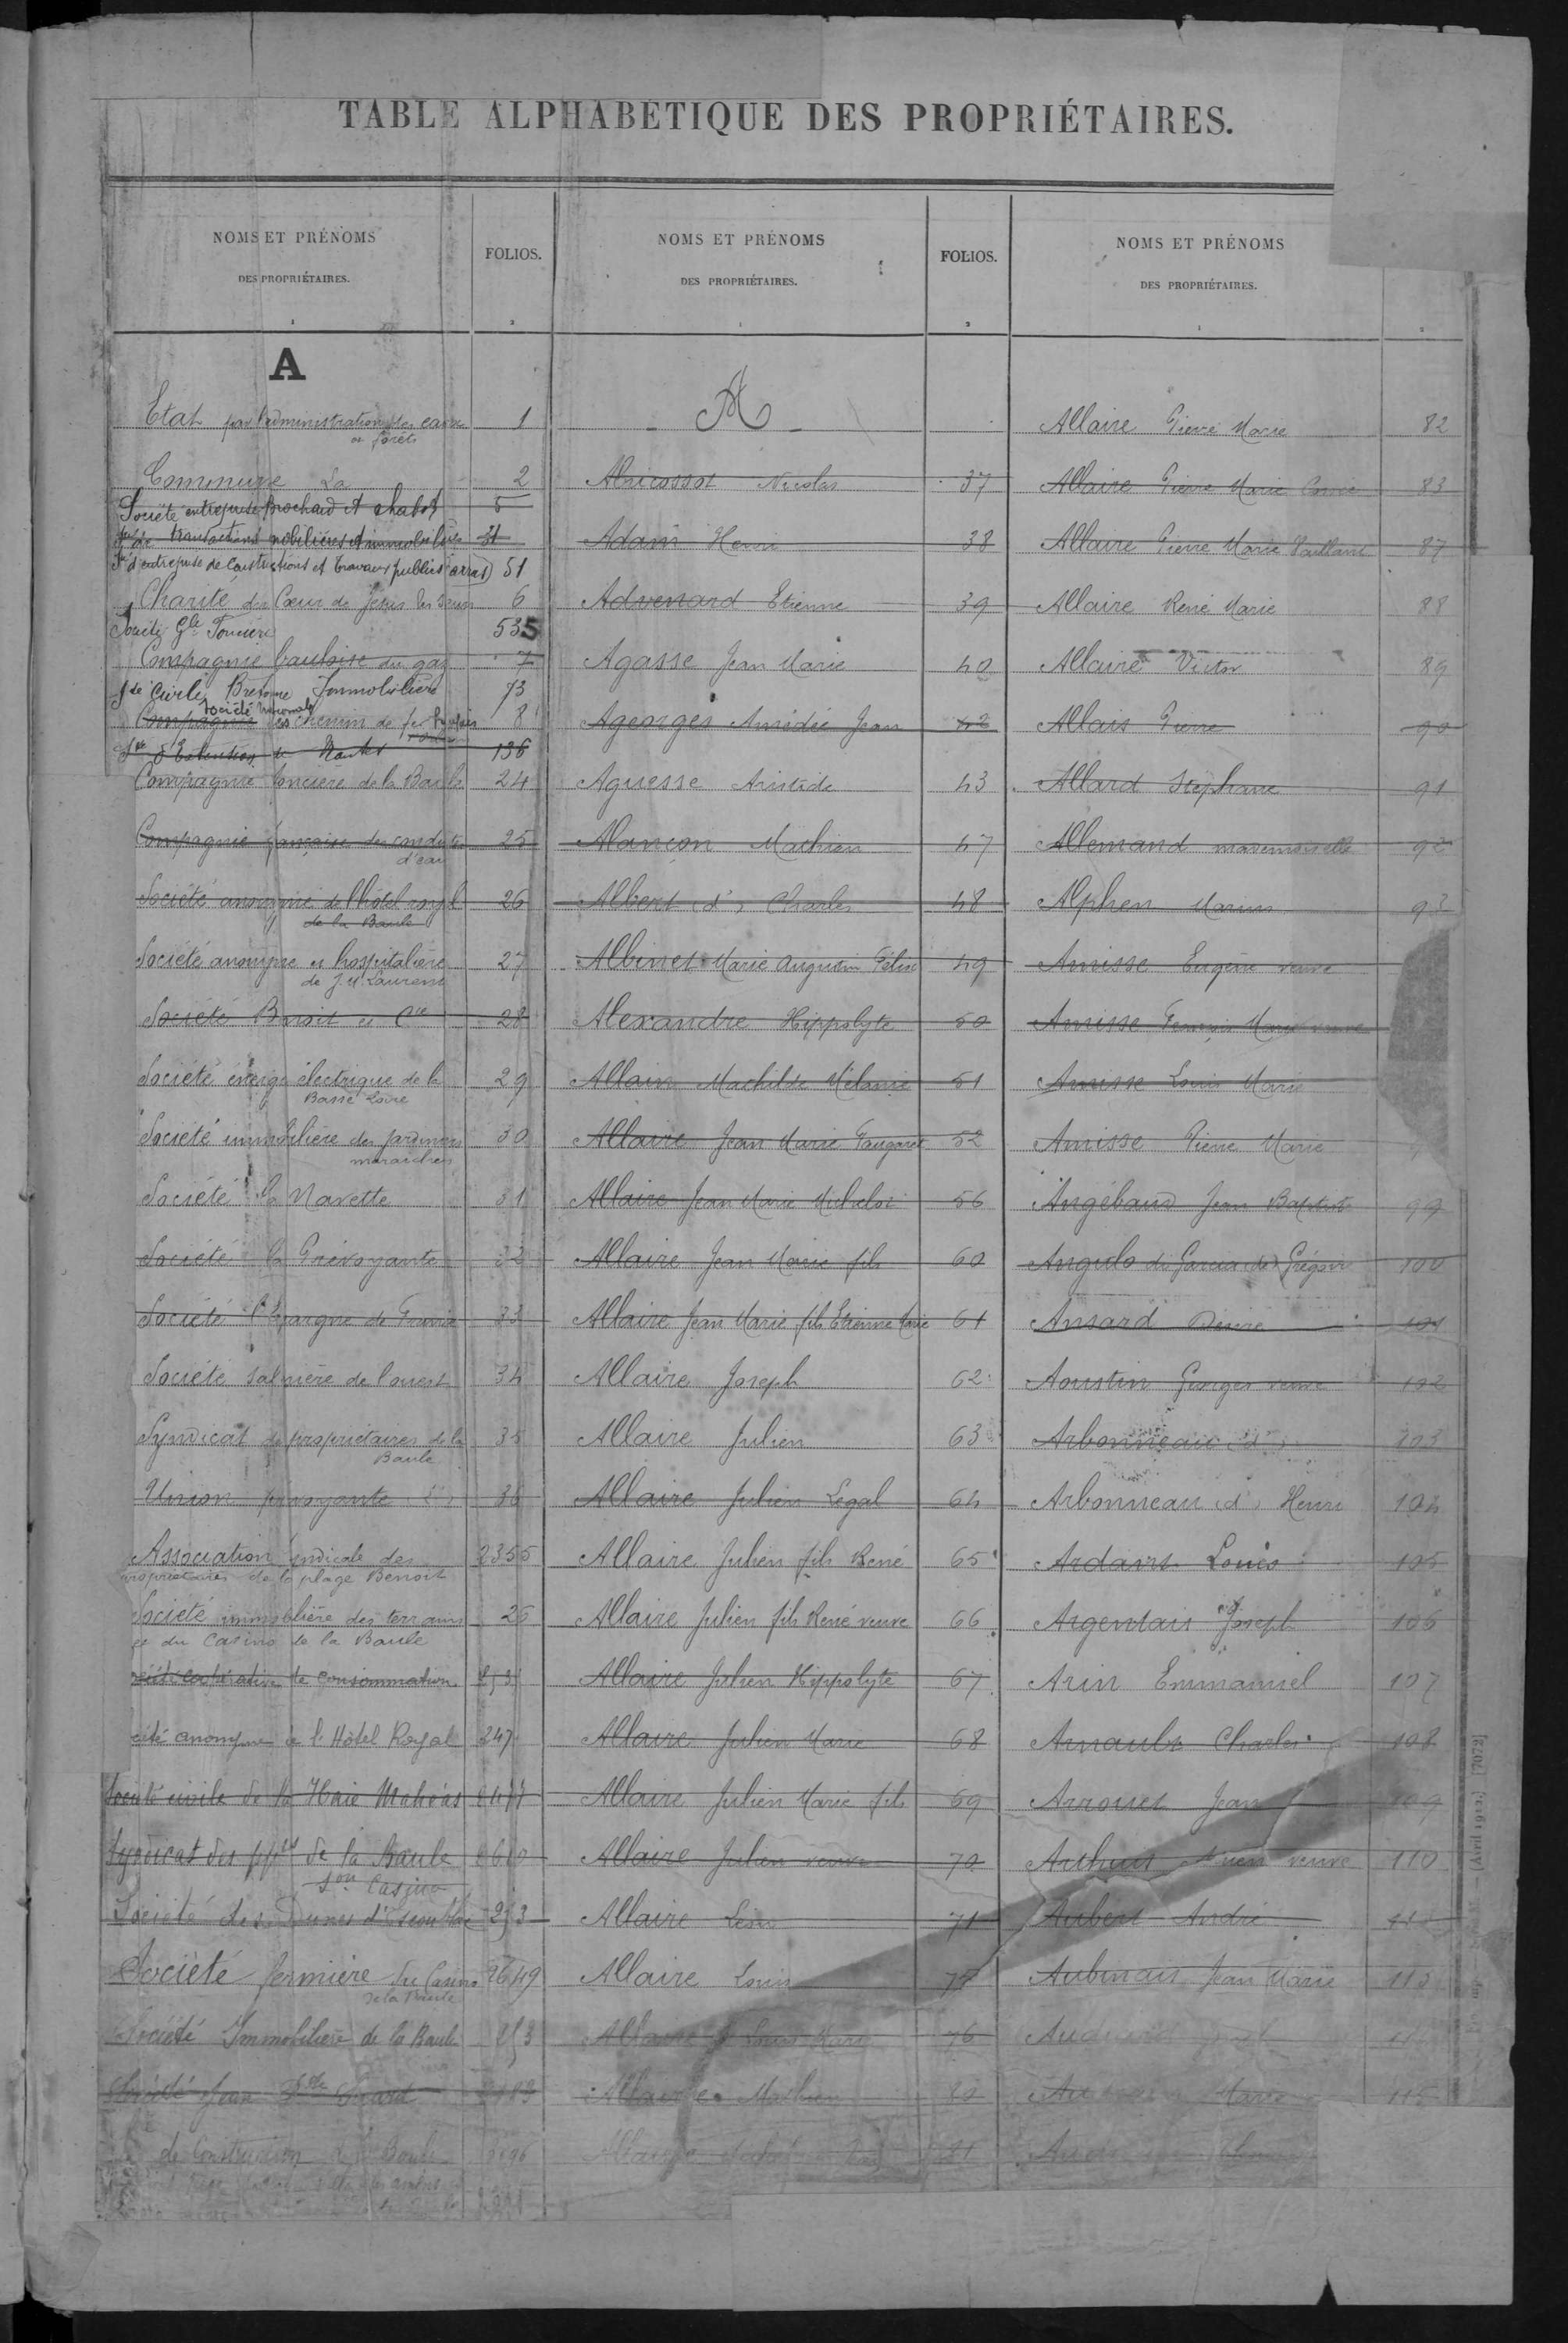 TABLE ALPHABÉTIQUE DES PROPRIÉTAIRES.
NOMS ET PRÉNOMS
DES PROPRIÉTAIRES.
FOLIOS.
A
Etat par l'administration des eaux 1
et forêts
Commune La 2
Société entreprise Brochard et Chabot 5
Sté de transactions mobilières et immobilières 31
Sté d'entreprise de Constructions et travaux publics (arras) 51
Charité du Cœur de Jésus les Sœurs 6
Société Gle Foncière 535
Compagnie bauloise du gaz 7
Sté Civile Bretonne Immobilière 73
Société Nationale
Compagnie des chemin de fer français 8
Sté d'Extension de Nantes 136
Compagnie foncière de la Baule 24
Compagnie française des conduites 25
d'eau
Société anonyme de l'hôtel royal 26
de la Baule
Société anonyme et hospitalière 27
de J. M. Laurent
Société Benoit et Cie 28
Société énergie électrique de la 29
Basse Loire
Société immobilière des jardiniers 30
maraichers
Société la Navette 31
Société la Prévoyante 32
Société l'Epargne de France 33
Société salinière de l'ouest 34
Syndicat de propriétaires de la 35
Baule
Union prévoyante (L') 36
Association syndicale des 2355
propriétaires de la plage Benoit
Société immobilière des terrains 25
et du Casino de la Baule
de consommation
anonyme de l'Hôtel Royal 247
Société civile de la Haie Mahéas 2477
Syndicat des pptes de la Baule 2610
son Casino
Société des Dunes d'Escoublac 253
Société fermière du Casino 2649
de la Baule
Société Immobilière de la Baule 253
Société Jean
de Construction de la Baule
NOMS ET PRÉNOMS
DES PROPRIÉTAIRES.
FOLIOS.
A
Abricossot Nicolas 37
Adam Henri 38
Advenard Etienne 39
Agasse Jean Marie 40
Ageorges Amédée Jean 42
Aguesse Aristide 43
Alançon Mathieu 47
Albert (d') Charles 48
Albinet Marie Augustin Félix 49
Alexandre Hippolyte 50
Allain Mathilde Mélanie 51
Allaire Jean Marie Fougaret 52
Allaire Jean Marie Michelot 56
Allaire Jean Marie fils 60
Allaire Jean Marie fils Etienne Marie 61
Allaire Joseph 62
Allaire Julien 63
Allaire Julien Legal 64
Allaire Julien fils René 65
Allaire Julien fils René veuve 66
Allaire Julien Hippolyte 67
Allaire Julien Marie 68
Allaire Julien Marie fils 69
Allaire Julien veuve 70
Allaire Léon 71
Allaire Louis 75
Allaire Louis Marie 76
Allaire Mathieu 80
Allaire 81
NOMS ET PRÉNOMS
DES PROPRIÉTAIRES.
Allaire Pierre Marie 82
Allaire Pierre Marie 83
Allaire Pierre Marie Vaillant 87
Allaire René Marie 88
Allaire Victor 89
Allais Pierre 90
Allard Stéphane 91
Allemand mademoiselle 92
Alphen Marius 93
Amisse Eugène veuve
Amisse François Marie veuve
Amisse Louis Marie
Amisse Pierre Marie
Angébaud Jean Baptiste 99
Angulo de Garcia (de) Grégoire 100
Ansard Désiré 101
Aoustin Georges veuve 102
Arbonneau (d') 103
Arbonneau (d') Henri 104
Ardaint Louis 105
Argentais Joseph 106
Arin Emmanuel 107
Arnault Charles 108
Arrouet Jean 109
Arthuis veuve 110
Aubert André
Aubinais Jean Marie 113
115
(Avril 1912.) [7072]